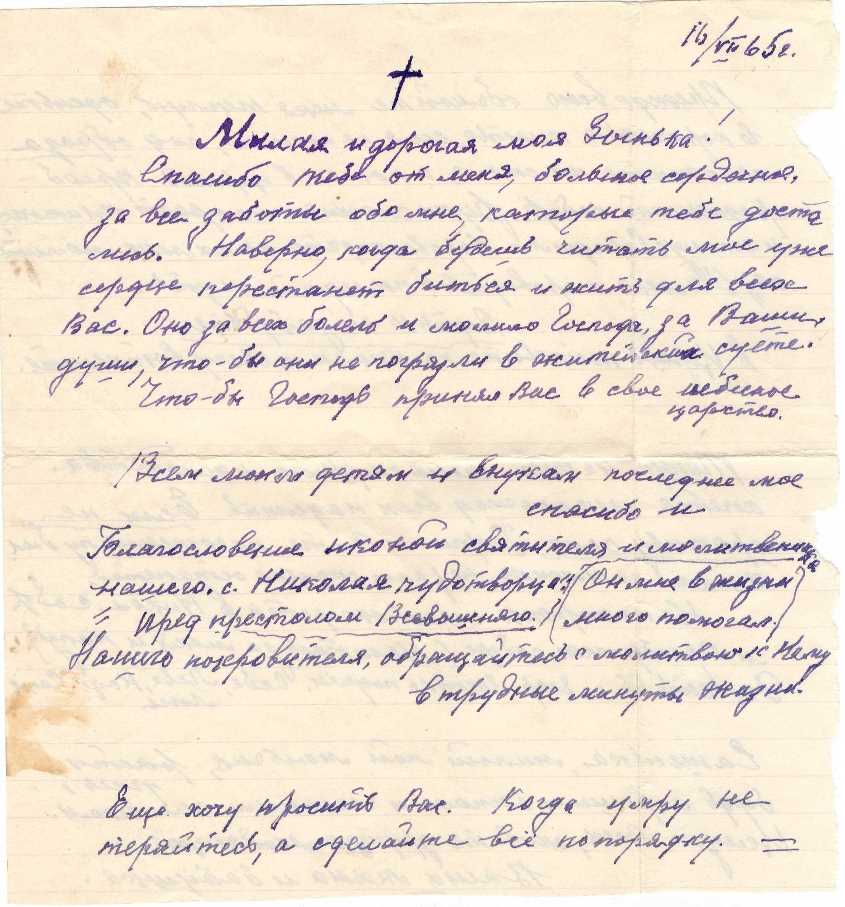 16/VII 65г.
Милая и дорогая моя Зинька!
Спасибо тебе от меня, большое сердечное,
за все заботы обо мне, каторые тебе доста
лись. Наверно, когда будешь читать мое уже
сердце перестанет биться и жить для всех
Вас. Оно за всех болело и молило Господа, за Ваши
души, что-бы они не погрязли в житейской суете.
Что-бы Господь принял Вас в свое небесное
царство.
Всем моим детям и внукам последнее мое
спасибо и
Благословение иконой святителя и молитвенника
нашего. с. Николая чудотворца (Он мне в жизни
пред престолом Всевышняго.) много помогал.)
Нашего покровителя, обращайтесь с молитвою к Нему
в трудные минуты жизни.
Еще хочу просить Вас. Когда умру не
теряйтесь, а сделайте всё по порядку. =